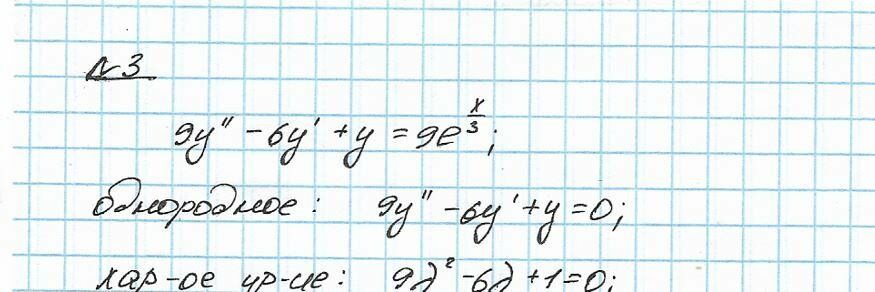 №3
9y'' - 6y' + y = 9e^{x/3};
однородное: 9y'' - 6y' + y = 0;
хар-ое ур-ие: 9λ² - 6λ + 1 = 0;